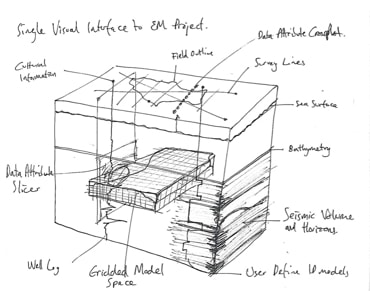 Single Visual Interface to EM Project.
Data Attribute Crossplot.
Field Outline
Cultural
Information
Survey Lines
Sea Surface
Bathymetry
Data Attribute
Slicer
Seismic Volume
and Horizons.
Well Log
Gridded Model
Space
User Define 1D models